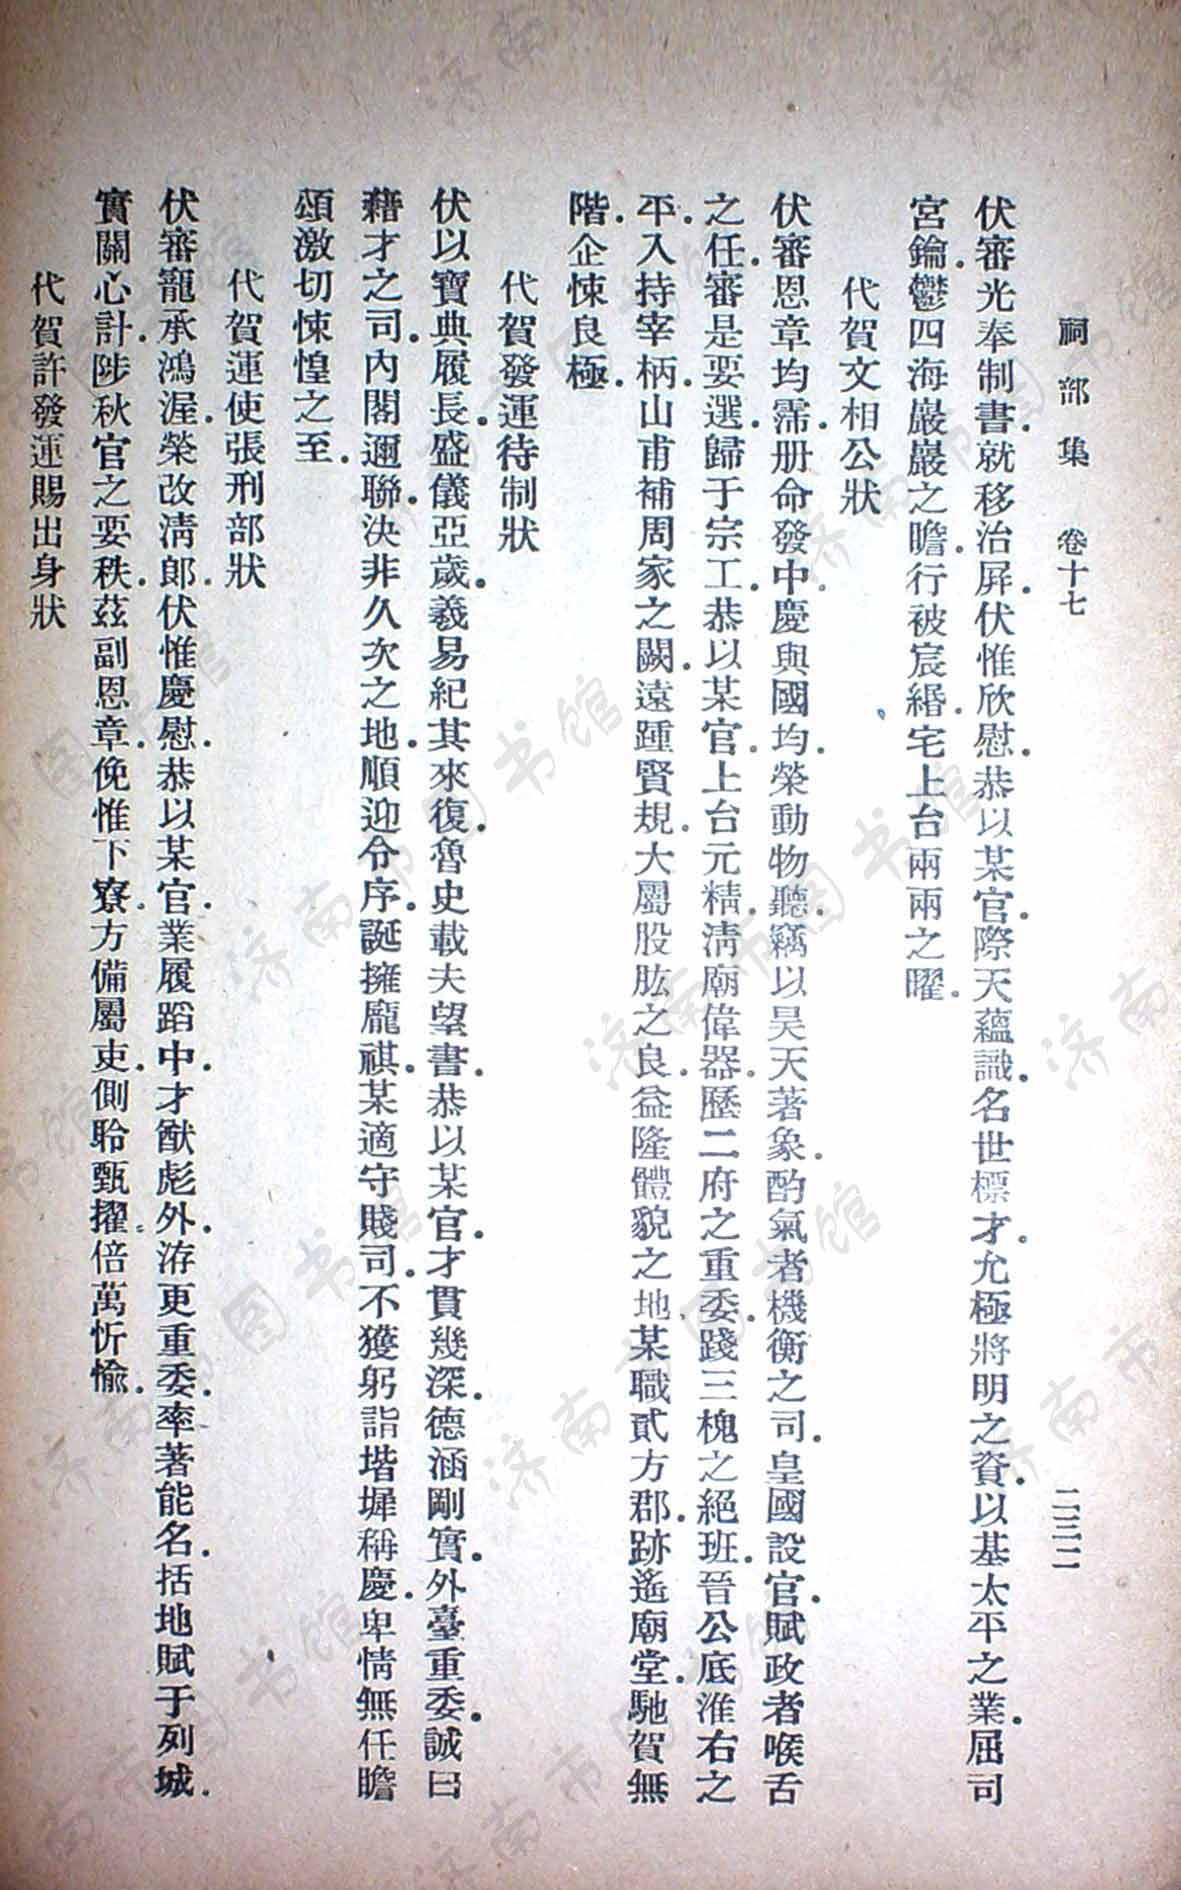 祠部集　卷十七　二三二
伏審光奉制書．就移治屏．伏惟欣慰．恭以某官．際天蘊識．名世標才．允極將明之資．以基太平之業．屈司
宮鑰．鬱四海巖巖之瞻．行被宸緡．宅上台兩兩之曜．
代賀文相公狀
伏審恩章均霈．册命發中．慶與國均．榮動物聽．竊以昊天著象．酌氣者機衡之司．皇國設官．賦政者喉舌
之任．審是要選．歸于宗工．恭以某官．上台元精．淸廟偉器．歷二府之重委．踐三槐之絕班．晉公底淮右之
平．入持宰柄．山甫補周家之闕．遠踵賢規．大屬股肱之良．益隆體貌之地．某職貳方郡．跡遙廟堂．馳賀無
階．企悚良極．
代賀發運待制狀
伏以寶典履長．盛儀亞歲．羲易紀其來復．魯史載夫望書．恭以某官．才貫幾深．德涵剛實．外臺重委．誠曰
藉才之司．內閣邇聯．決非久次之地．順迎令序．誕擁龐祺．某適守賤司．不獲躬詣堦墀稱慶．卑情無任瞻
頌激切悚惶之至．
代賀運使張刑部狀
伏審寵承鴻渥．榮改淸郎．伏惟慶慰．恭以某官．業履蹈中．才猷彪外．洊更重委．率著能名．括地賦于列城．
實關心計．陟秋官之要秩．茲副恩章．俛惟下寮．方備屬吏．側聆甄擢．倍萬忻愉．
代賀許發運賜出身狀
济南市图书馆